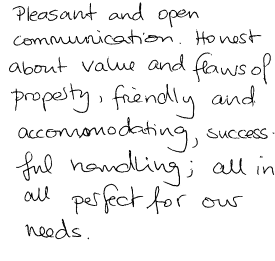 Pleasant and open
communication. Honest
about value and flaws of
property, friendly and
accommodating, success-
ful handling; all in
all perfect for our
needs.